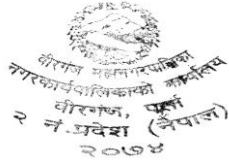 वीरगंज महानगरपालिका
नगरकार्यपालिकाको कार्यालय
वीरगंज, पर्सा
२ नं. प्रदेश (नेपाल)
२०७४